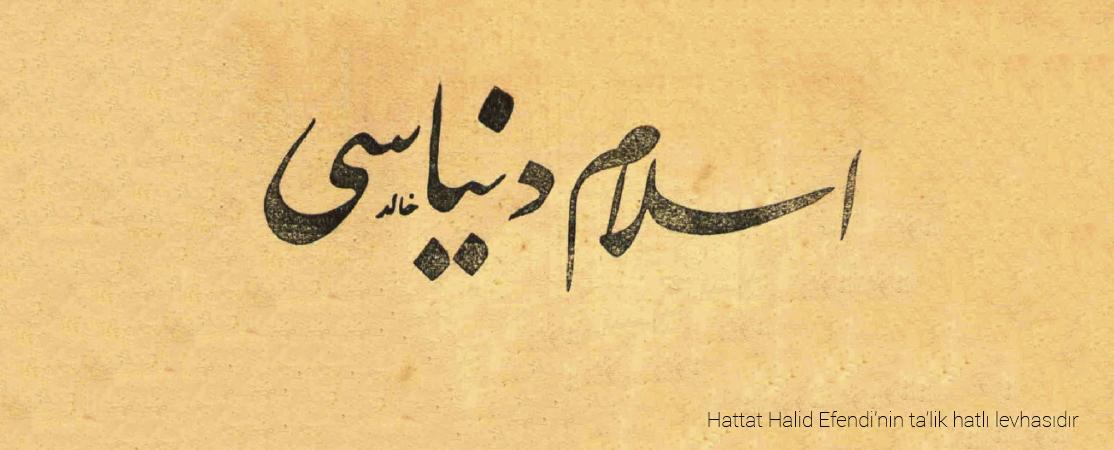 اسلام دنیاسی
خالد
Hattat Halid Efendi'nin ta'lik hatlı levhasıdır